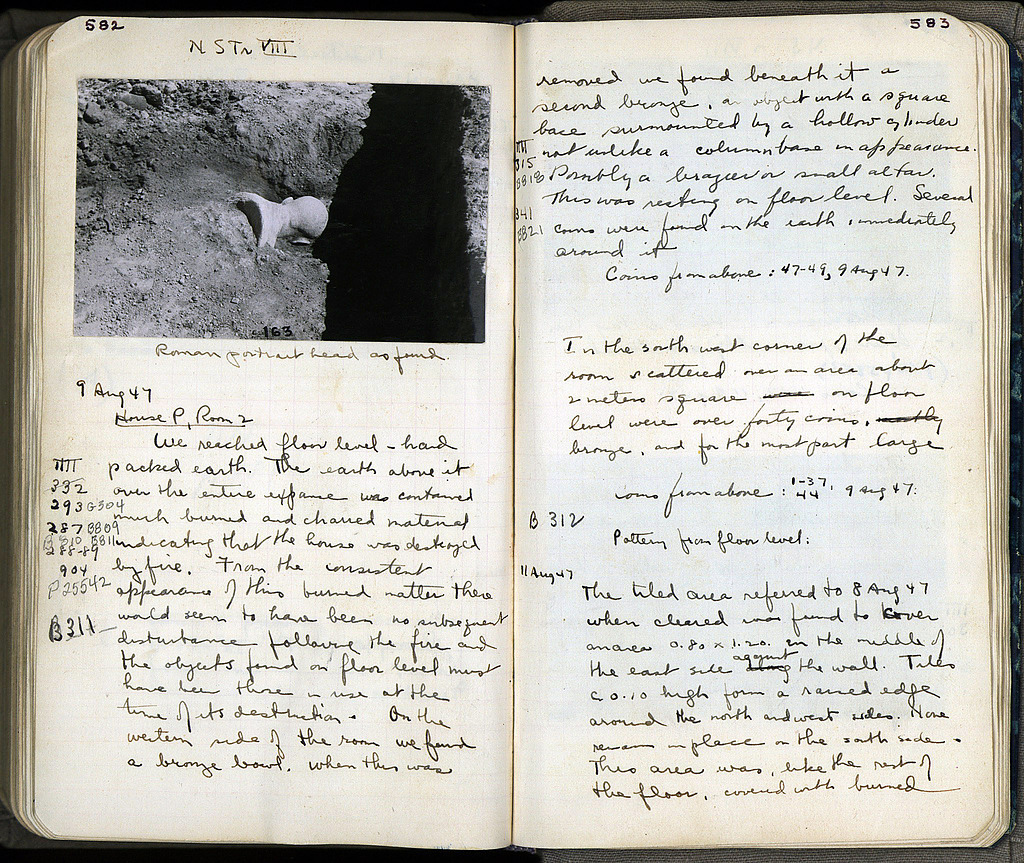 582
N STr VIII
163
Roman portrait head as found.
9 Aug 47
House P, Room 2
We reached floor level - hard
packed earth. The earth above it
over the entire expanse was contained
much burned and charred material
indicating that the house was destroyed
by fire. From the consistent
appearance of this burned matter there
would seem to have been no subsequent
disturbance following the fire and
the objects found on floor level must
have been those in use at the
time of its destruction. On the
western side of the room we found
a bronze bowl. When this was
III
332
293 G504
287 B809
B 810 B811
288-89
904
P 25542
B311
583
removed we found beneath it a
second bronze, an object with a square
base surmounted by a hollow cylinder
not unlike a column base in appearance.
Possibly a brazier or small altar.
This was resting on floor level. Several
coins were found in the earth immediately
around it
III
315
B818
341
B821
Coins from above: 47-49, 9 Aug 47.
In the south west corner of the
room scattered over an area about
2 meters square were on floor
level were over forty coins, mostly
bronze, and for the most part large
coins from above: 1-37, 44, 9 Aug 47.
B 312
Pottery from floor level:
11 Aug 47
The tiled area referred to 8 Aug 47
when cleared was found to cover
an area 0.80 x 1.20 in the middle of
the east side along against the wall. Tiles
c 0.10 high form a raised edge
around the north and west sides. None
remain in place on the south side.
This area was, like the rest of
the floor, covered with burned